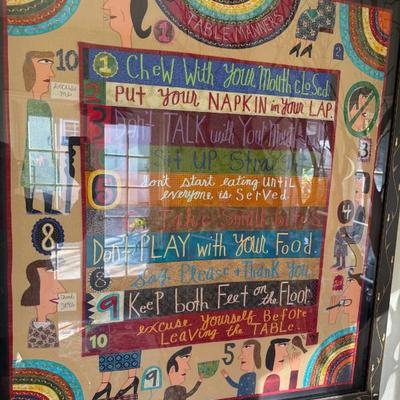 TABLE MANNERS
1 CHEW WITH YOUR MOUTH CLOSED
2 PUT YOUR NAPKIN in YOUR LAP.
3 DON'T TALK with YOUR MOUTH
SIT UP STRAIGHT
5 don't start eating until
everyone is served.
Take small bites
Don't PLAY with your Food.
8 Say Please + Thank You
9 KEEP both FEET on the FLOOR
10 excuse yourself Before
LEAVING the TABLE.
10
excuse
me
2
3
4
8
Thank
you
9
5